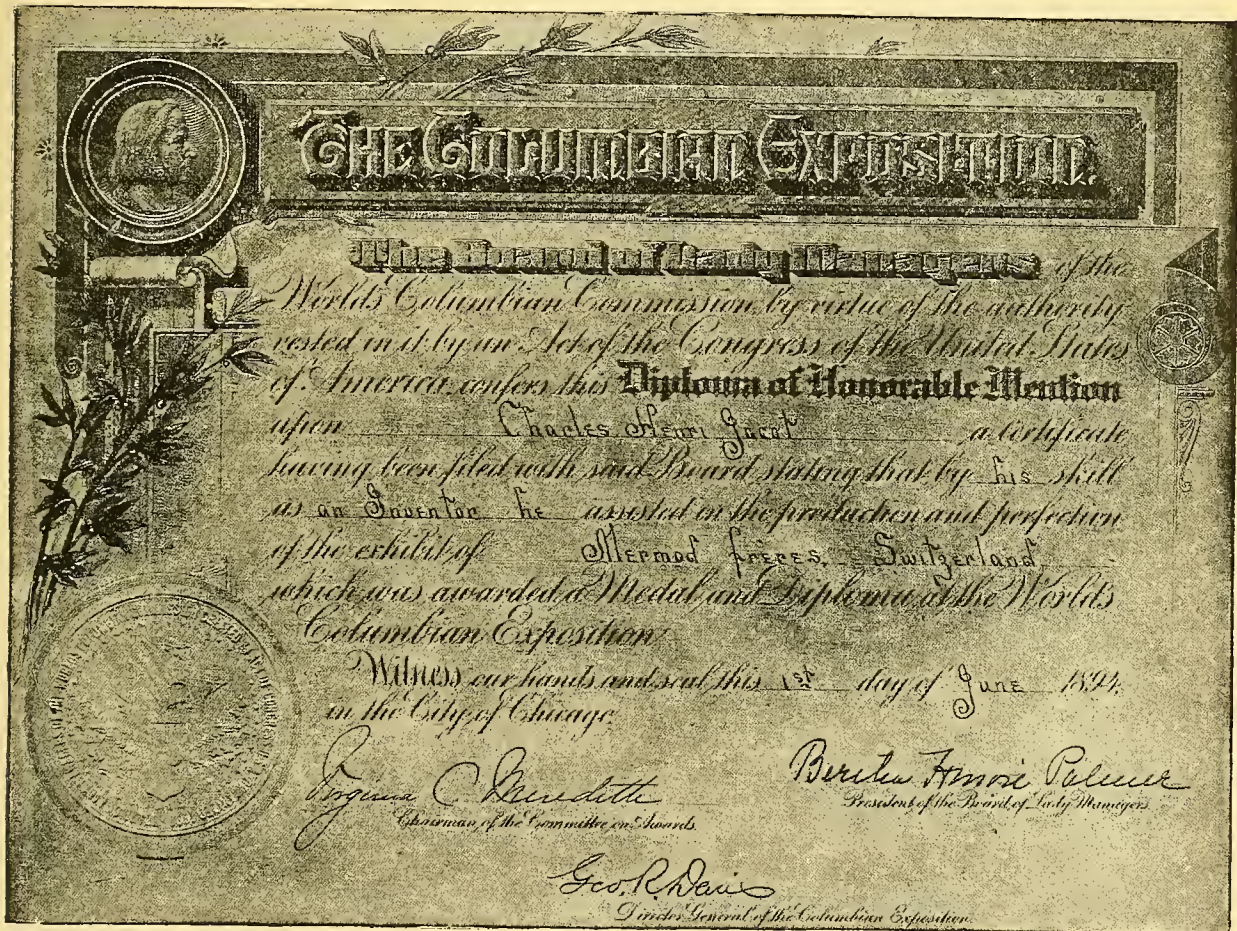 THE COLUMBIAN EXPOSITION.
The Board of Lady Managers of the
Worlds Columbian Commission, by virtue of the authority
vested in it by an Act of the Congress of the United States
of America, confers this Diploma of Honorable Mention
upon Charles Henri Jacot a certificate
having been filed with said Board stating that by his skill
as an Inventor he assisted in the production and perfection
of the exhibit of Mermod frères, Switzerland
which was awarded a Medal and Diploma at the Worlds
Columbian Exposition
Witness our hands and seal this 1st day of June 1894,
in the City of Chicago.
Virginia C. Meredith
Chairman of the Committee on Awards.
Bertha Honoré Palmer
President of the Board of Lady Managers.
Geo. R. Davis
Director General of the Columbian Exposition.